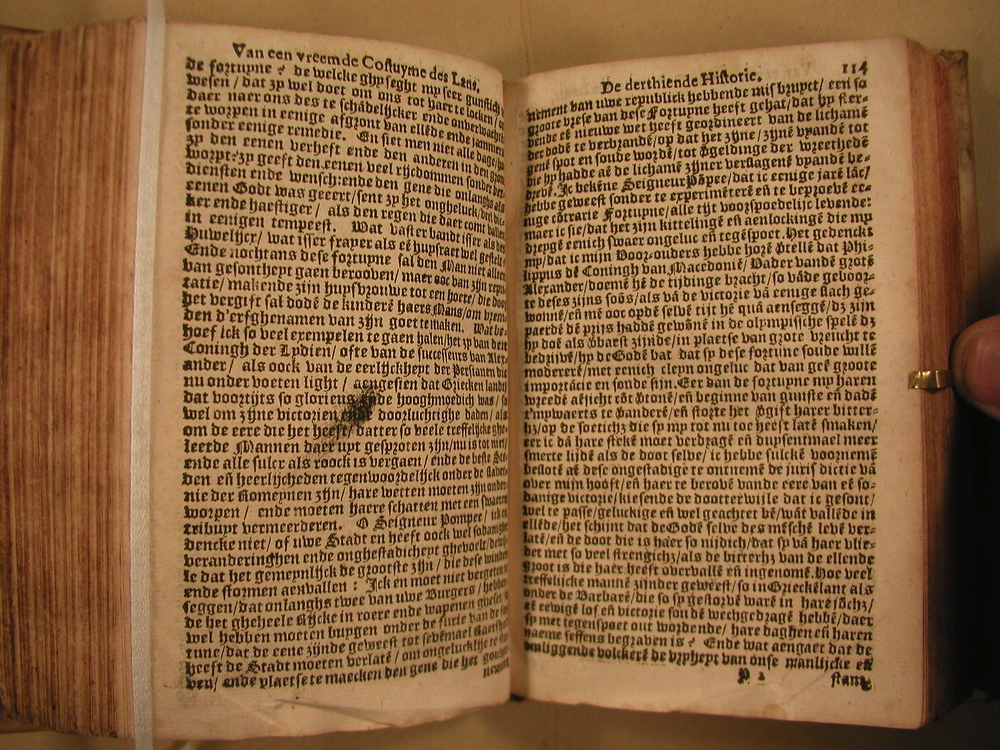 Van een vreemde Costuyme des Lans.
de fortupne? de welcke ghy seght my seer gunstich
wesen/ dat zy wel doet om ons tot haer te locken/
daer naer ons des te schadelijcker ende onverwachts
te worpen in eenige afgront van ellēde ende jammern
sonder eenige remedie. En siet men niet alle dage/
zy den eenen verheft ende den anderen in den gron
worpt: zy geeft den eenen veel rijcdommen sonder
diensten ende wensch: ende den gene die onlanghs als
eenen Godt was geeert/ sent zy het ongheluck/
ker ende haestiger/ als den regen die daer comt vallen
in eenigen tempeest. Wat vaster bandt isser als den
Huwelijcx/ wat isser frayer als eē huysraet wel gestelt/
Ende nochtans dese fortupne sal den Man niet alleen
van gesontheyt gaen berooven/ maer ooc van zijn repu-
tatie/ makende zijn huysvrouwe tot een hoere/ die door
het vergift sal dodē de kinderē haers Mans/ om vrem
den d'erfghenamen van zijn goet te maken. Wat be-
hoef ick so veel exempelen te gaen halen/ het zy van den
Coningh der Lydien/ ofte van de successeurs van Alex
ander/ als oock van de eerlijckheyt der Persianen die
nu onder voeten light/ aengesien dat Griecken landt
dat voortijts so glorieus ende hooghmoedich was/ so
wel om zijne victorien ende doorluchtighe daden/ als
om de eere die het heeft/ datter so veele treffelijcke ghe-
leerde Mannen daer uyt gesproten zijn/ nu is tot niet/
ende alle sulcx als roock is vergaen/ ende de beste Ste-
den eñ heerlijcheden tegenwoordelijck onder de slaver-
nie der Romeynen zijn/ hare wetten moeten zijn onder
worpen/ ende moeten haere schatten met een swaeren
tribuyt vermeerderen. O Seigneur Pompee/ ick en
dencke niet/ of uwe Stadt en heeft oock wel sodanighe
veranderinghen ende onghestadicheyt ghevoelt/
le dat het gemeynlijck de grootste zijn/ die dese winden
ende stormen aenvallen: Ick en moet niet vergeten te
seggen/ dat onlanghs twee van uwe Burgers/ hebben
de het gheheele Rijcke in roere ende wapenen ghestelt
wel hebben moeten buygen onder de furie van de for
tune/ dat de eene zijnde geweest tot sevēmael
heeft de Stadt moeten verlatē/ om ongelucklijck te
ven/ ende plaetse te maecken den gene die het gouver-
nement
De derthiende Historie. 114
nement van uwe republick hebbende misbruyct/ een so
groote vrese van dese Fortupne heeft gehat/ dat hy ster-
vende eē nieuwe wet heeft geordineert van de lichamē
der dodē te verbrandē/ op dat het zijne/ zijnē vyandē tot
genē spot en soude wordē/ tot v̄geldinge der wreethedē
die hy hadde aē de lichamē zijner verslagenē vyandē be-
drevē. Ic bekēne Seigneur Pōpee/ dat ic eenige jarē lāc/
hebbe geweest sonder te experimēterē eñ te beproevē ee-
nige cōtrarie Fortupne/ alle tijt voorspoedelijc levende:
maer ic sie/ dat het zijn kittelingē eñ aenlockingē die my
dreygē eenich swaer ongeluc eñ tegēspoet. Het gedenckt
my/ dat ic mijn Voor-ouders hebbe horē v̄tellē dat Phi-
lippus dē Coningh van Macedoniē/ Vader vandē grotē
Alexander/ doemē hē de tijdinge bracht/ so vāde geboor-
te deses zijns soōs/ als vā de victorie vā eenige slach ge-
wonnē/ eñ mē ooc opdē selvē tijt hē quā aenseggē/ dz zijn
paerdē dē prijs haddē gewōnē in de olympissche spelē dz
hy doē als v̄baest zijnde/ in plaetse van grote vreucht te
bedrijvē/ hy de Godē bat dat sy dese fortune soude willē
moderērē/ met eenich cleyn ongeluc dat van geē groote
importācie en soude sijn. Eer dan de fortupne my haren
wreedē aēsicht cōt v̄tonē/ eñ beginne van gunste eñ dadē
t'mywaerts te v̄anderē/ eñ storte het v̄gift harer bitter-
hz/ op de soeticheyt die sy my tot nu toe heest latē smaken/
eer ic dā hare stekē moet verdragē eñ duysentmael meer
smerte lijdē als de doot selve/ ic hebbe sulckē voornemē
beslotē aē dese ongestadige te ontnemē de jurisdictie vā
over mijn hooft/ eñ haer te berovē vande eere van eē so-
danige victorie/ kiesende de doot terwijle dat ic gesont/
wel te passe/ geluckige eñ wel geachtet bē/ wāt vallēde in
ellēde/ het schijnt dat de Godē selve des mēschē levē ver-
latē/ eñ de doot die is haer so nijdich/ dat sy vā haer vlie-
det met so veel strengichz/ als de bitterhz van de ellende
groot is die haer heeft overvallē eñ ingenomē. Hoe veel
treffelijcke mannē zijnder geweest/ so in Grieckēlant als
onder de Barbarē/ die so sy gestorvē warē in harē jōchz/
eē eewigē lof eñ victorie soudē wechgedragē hebbē/ daer
sy met tegenspoet out wordende/ hare daghen eñ haren
naeme seffens begraven is? Ende wat aengaet dat de
omliggende volckerē de vryheyt van onse manlijcke eñ
P 2 stant-